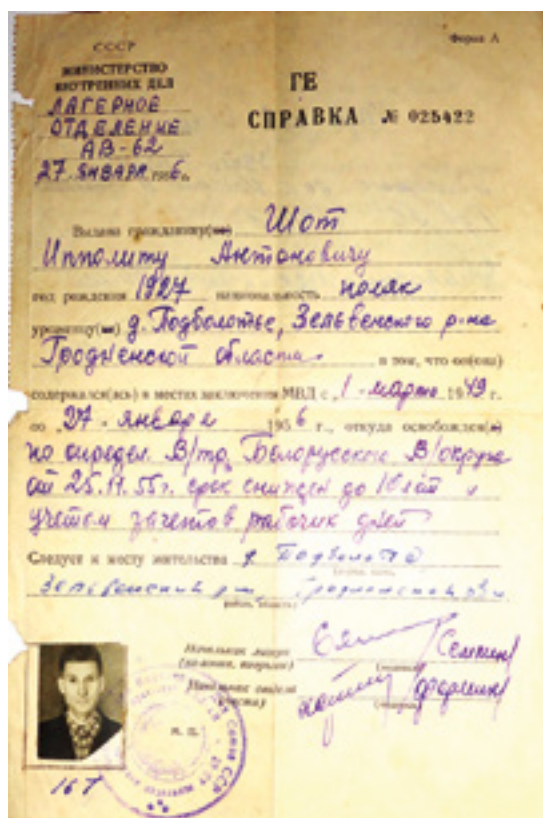 СССР
Форма А
МИНИСТЕРСТВО
ВНУТРЕННИХ ДЕЛ
ЛАГЕРНОЕ
ОТДЕЛЕНИЕ
АВ-62
27 ЯНВАРЯ 1956 г.
ГЕ
СПРАВКА № 025422
Выдана гражданину(ке) Шот
Ипполиту Антоновичу
год рождения 1927 национальность поляк
уроженцу(ке) д. Подболотье, Зельвенского р-на
Гродненской области в том, что он(она)
содержался(ась) в местах заключения МВД с 1 марта 1949 г.
по 27 января 1956 г., откуда освобожден(а)
по определ. В/тр. Белорусского В/округа
от 25.11.55г. срок снижен до 10 лет и
учетом зачетов рабочих дней
Следует к месту жительства д. Подболотье
Зельвенский
район, область
Начальник лагеря
(колонии, тюрьмы)
(подпись)
Начальник отдела
(части)
(подпись)
М. П.